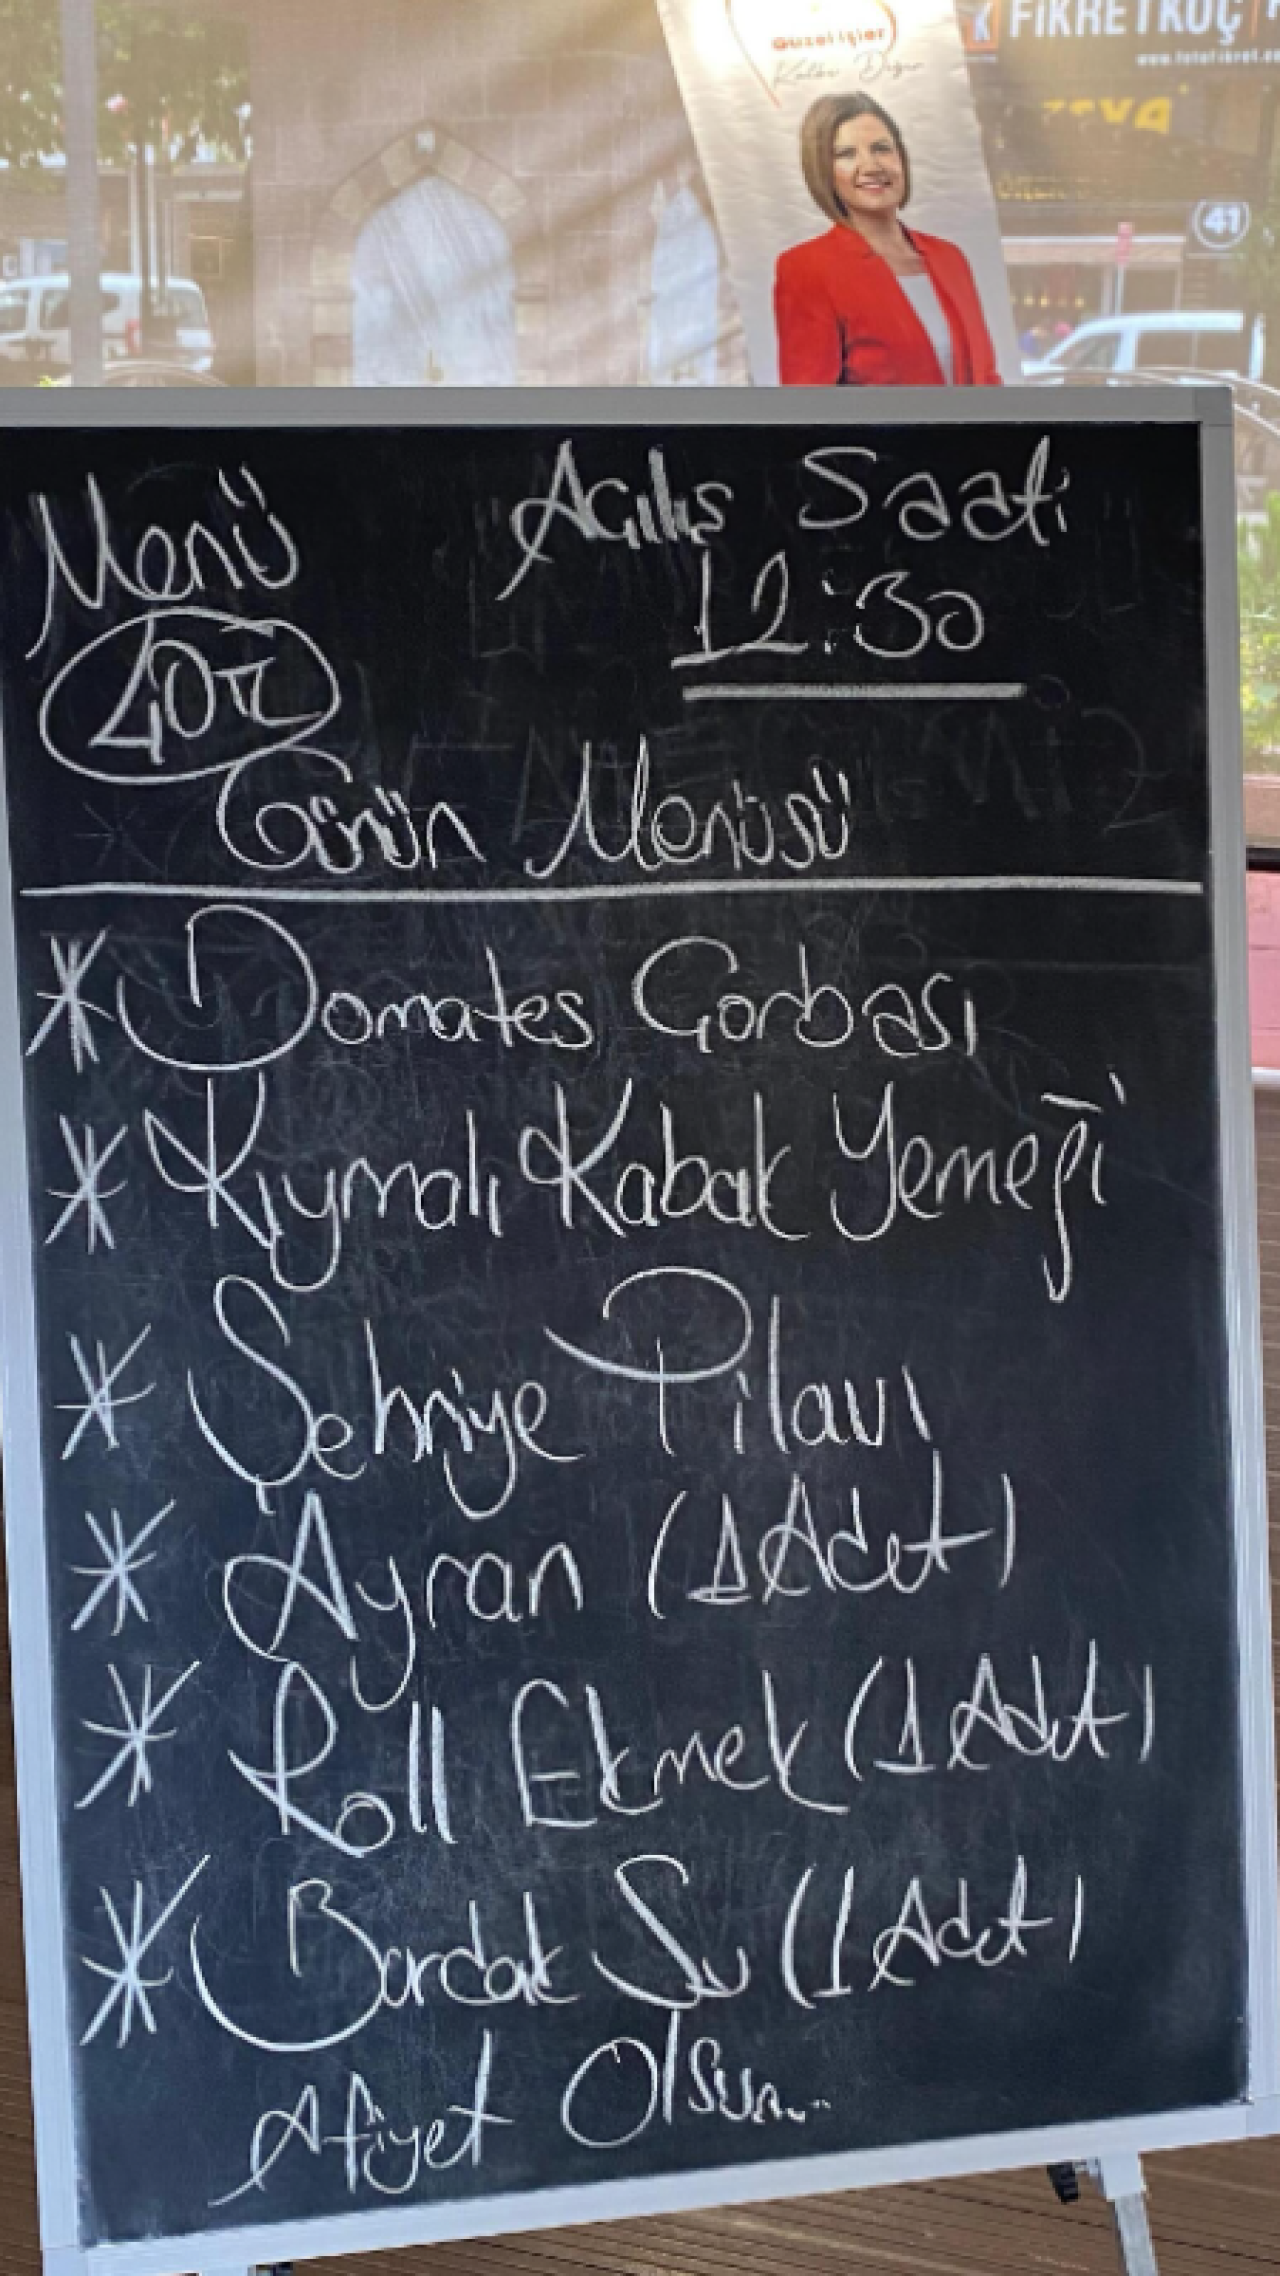 Güzel işler
Kalbe Değer
FİKRET KOÇ
41
Menü
40TL
Açılış Saati
12:30
Günün Menüsü
* Domates Çorbası
* Kıymalı Kabak Yemeği
* Şehriye Pilavı
* Ayran (1 Adet)
* Roll Ekmek (1 Adet)
* Bardak Su (1 Adet)
Afiyet Olsun...